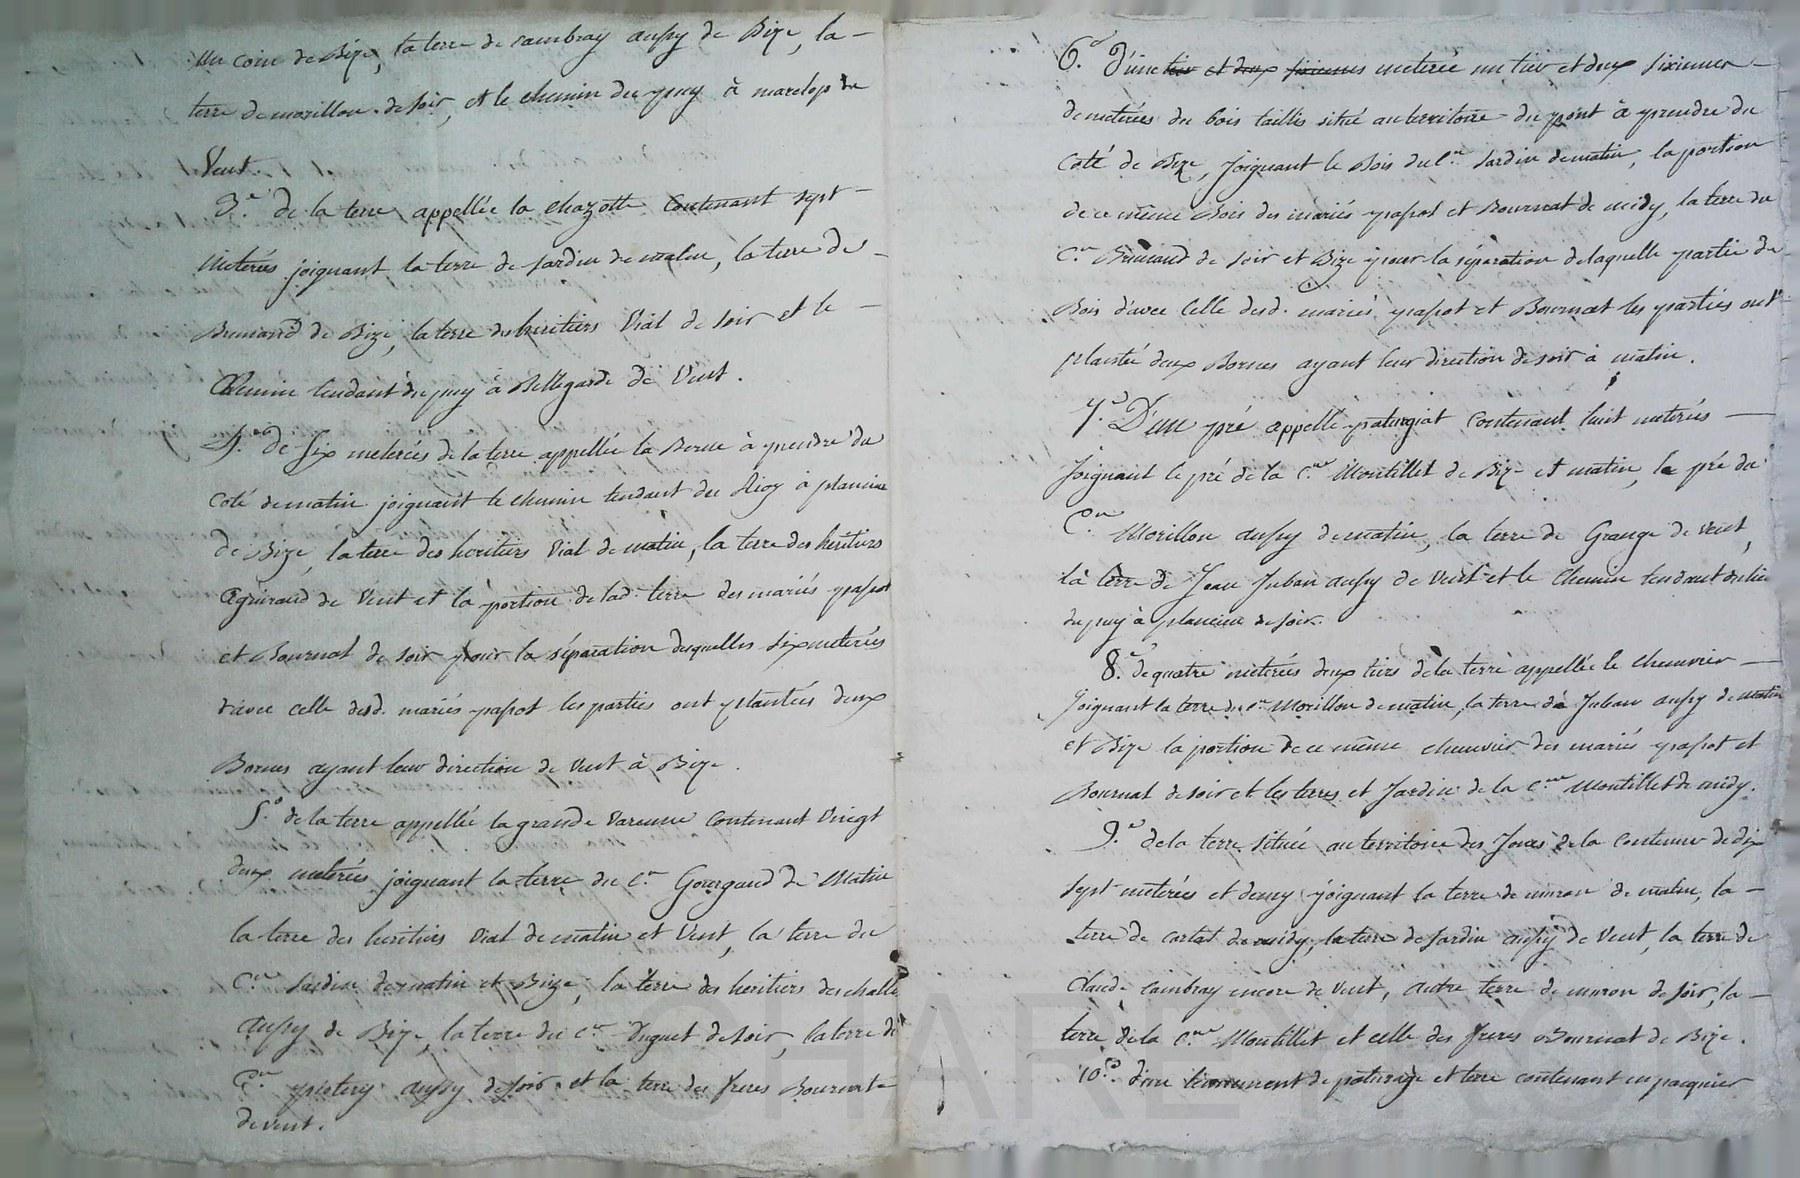 un coin de Bize, la terre de Cambray aussy de Bize, la -
terre de morillon de soir, et le chemin du puy à marclop de
Vent.
3.e de la terre appellée la chazotte contenant sept -
meterées joignant la terre de Jardin de matin, la terre de -
Brunand de Bize, la terre des heritiers Vial de soir et le -
Chemin tendant du puy à Bellegarde de Vent.
4.o de six meterées de la terre appellée la Borne à prendre du
coté de matin joignant le chemin tendant du à plancieu
de Bize, la terre des heritiers Vial de matin, la terre des heritiers
de Vent et la portion de lad. terre des mariés papot
et Bournat de soir pour la séparation desquelles six meterées
d'avec celle desd. mariés papot les parties ont plantées deux
Bornes ayant leur direction de Vent à Bize.
5.o de la terre appellée la grande Varenne contenant Vingt
deux meterées joignant la terre du C.en Gourgaud de Matin
la terre des heritiers Vial de matin et Vent, la terre du
C.en Jardin de matin et Bize, la terre des heritiers deschalle
aussy de Bize, la terre du C.en Duguet de soir, la terre de
C.en aussy de soir et la terre des freres Bournat -
de vent.
6.o D'une tier et deux sixiemes meterée un tier et deux sixiemes -
de meterées du bois taillis situé au territoire du pont à prendre du
Coté de Bize, Joignant le Bois du C.en Jardin de matin, la portion
de ce même Bois des mariés papot et Bournat de midy, la terre du
C.en Brunand de soir et Bize pour la séparation de laquelle partie de
Bois d'avec Celle desd. mariés papot et Bournat les parties ont
planté deux Bornes ayant leur direction de soir à matin.
7.o D'un pré appellé paturgiat contenant huit meterées -
Joignant le pré de la C.ne Montillet de Bize et matin, le pré du
C.en Morillon aussy de matin, la terre de Grange de vent,
la terre de Jean Juban aussy de Vent et le Chemin tendant du lieu
du puy à plancieu de soir.
8.o de quatre meterées deux tiers de la terre appellée le chenevier -
Joignant la terre du C.en Morillon de matin, la terre de Juban aussy de matin
et Bize la portion de ce même chenevier des mariés papot et
Bournat de soir et les terres et Jardin de la C.ne Montillet de midy.
9.o de la terre située au territoire des Joues de la contenue de dix
sept meterées et demy joignant la terre de miron de matin, la -
terre de cartat de midy, la terre de Jardin aussy de Vent, la terre de
Claude Cambray encore de Vent, autre terre de miron de soir, la -
terre de la C.ne Montillet et celle des freres Bournat de Bize.
10.o d'un tennement de paturage et terre contenant en paquier
CHAREYRON